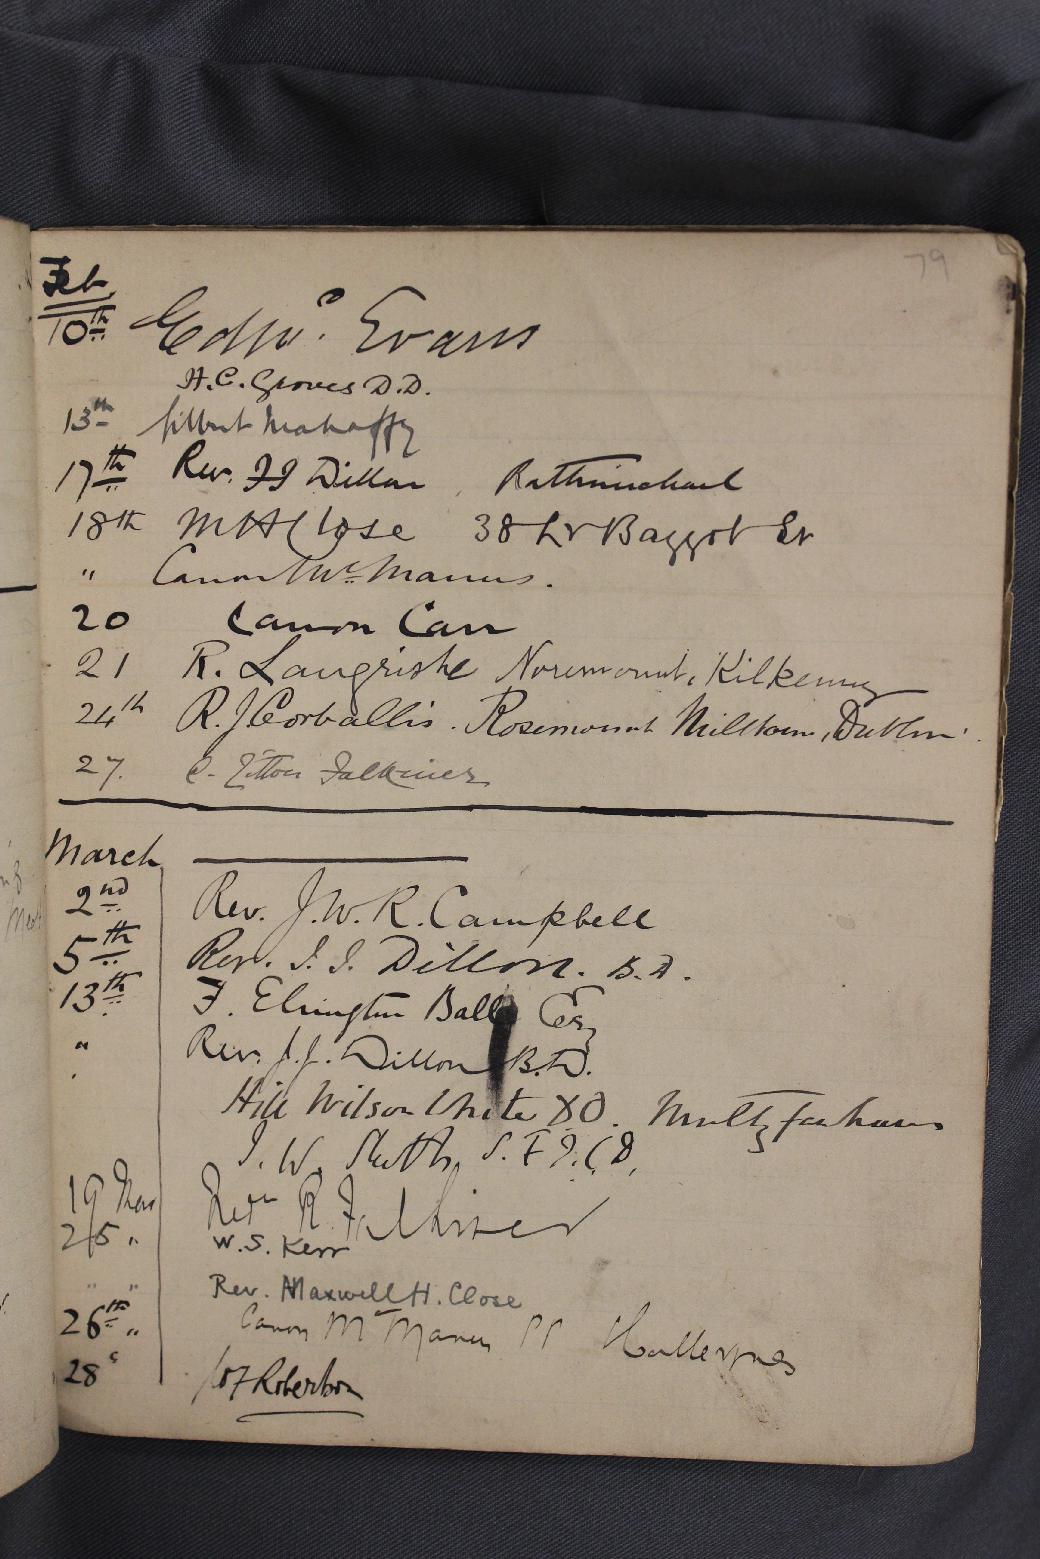 79
Feb.
10th Edwd. Evans
H.C. Groves D.D.
13th Gilbert Mahaffy
17th Rev. J J Dillon Rathmichael
18th M H Close 38 Lr Baggot St
" Canon McManus.
20 Canon Carr
21 R. Langrishe Noremount, Kilkenny
24th R. J Corballis. Rosemount Milltown, Dublin.
27. C. Litton Falkiner
March
2nd Rev. J. W. R. Campbell
5th Rev. J. J. Dillon. B.D.
13th F. Elrington Ball Esq
" Rev. J. J. Dillon B.D.
Hill Wilson White DD. Multyfarnham
J. W. S.F.T.C.D.
19 Mar R. Falkiner
25 " W. S. Kerr
" " Rev. Maxwell H. Close
26th " Canon McManus PP
28 Robertson